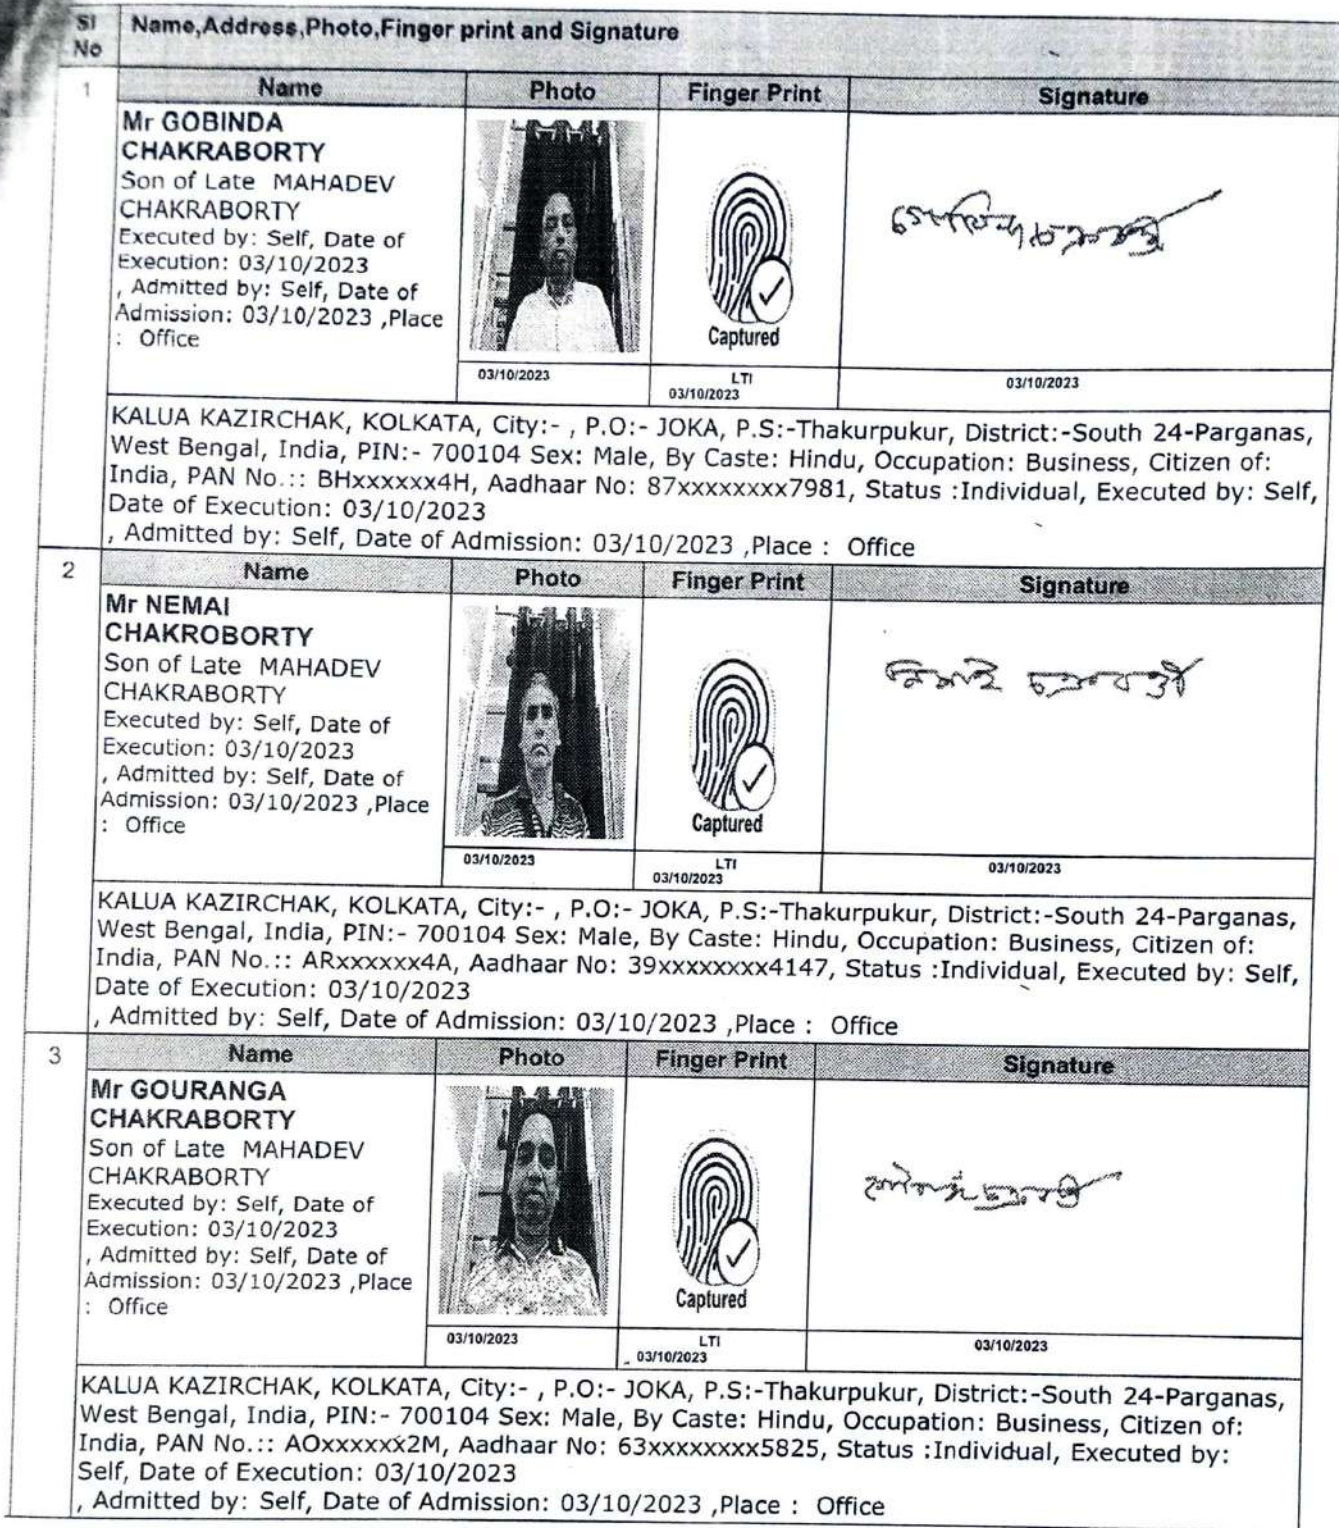 Sl No
Name,Address,Photo,Finger print and Signature
1
Name
Photo
Finger Print
Signature
Mr GOBINDA
CHAKRABORTY
Son of Late MAHADEV
CHAKRABORTY
Executed by: Self, Date of
Execution: 03/10/2023
, Admitted by: Self, Date of
Admission: 03/10/2023 ,Place
: Office
Captured
গোবিন্দ চক্রবর্তী
03/10/2023
LTI
03/10/2023
03/10/2023
KALUA KAZIRCHAK, KOLKATA, City:- , P.O:- JOKA, P.S:-Thakurpukur, District:-South 24-Parganas,
West Bengal, India, PIN:- 700104 Sex: Male, By Caste: Hindu, Occupation: Business, Citizen of:
India, PAN No.:: BHxxxxxx4H, Aadhaar No: 87xxxxxxxx7981, Status :Individual, Executed by: Self,
Date of Execution: 03/10/2023
, Admitted by: Self, Date of Admission: 03/10/2023 ,Place : Office
2
Name
Photo
Finger Print
Signature
Mr NEMAI
CHAKROBORTY
Son of Late MAHADEV
CHAKRABORTY
Executed by: Self, Date of
Execution: 03/10/2023
, Admitted by: Self, Date of
Admission: 03/10/2023 ,Place
: Office
Captured
নিমাই চক্রবর্তী
03/10/2023
LTI
03/10/2023
03/10/2023
KALUA KAZIRCHAK, KOLKATA, City:- , P.O:- JOKA, P.S:-Thakurpukur, District:-South 24-Parganas,
West Bengal, India, PIN:- 700104 Sex: Male, By Caste: Hindu, Occupation: Business, Citizen of:
India, PAN No.:: ARxxxxxx4A, Aadhaar No: 39xxxxxxxx4147, Status :Individual, Executed by: Self,
Date of Execution: 03/10/2023
, Admitted by: Self, Date of Admission: 03/10/2023 ,Place : Office
3
Name
Photo
Finger Print
Signature
Mr GOURANGA
CHAKRABORTY
Son of Late MAHADEV
CHAKRABORTY
Executed by: Self, Date of
Execution: 03/10/2023
, Admitted by: Self, Date of
Admission: 03/10/2023 ,Place
: Office
Captured
গৌরাঙ্গ চক্রবর্তী
03/10/2023
LTI
03/10/2023
03/10/2023
KALUA KAZIRCHAK, KOLKATA, City:- , P.O:- JOKA, P.S:-Thakurpukur, District:-South 24-Parganas,
West Bengal, India, PIN:- 700104 Sex: Male, By Caste: Hindu, Occupation: Business, Citizen of:
India, PAN No.:: AOxxxxxx2M, Aadhaar No: 63xxxxxxxx5825, Status :Individual, Executed by:
Self, Date of Execution: 03/10/2023
, Admitted by: Self, Date of Admission: 03/10/2023 ,Place : Office